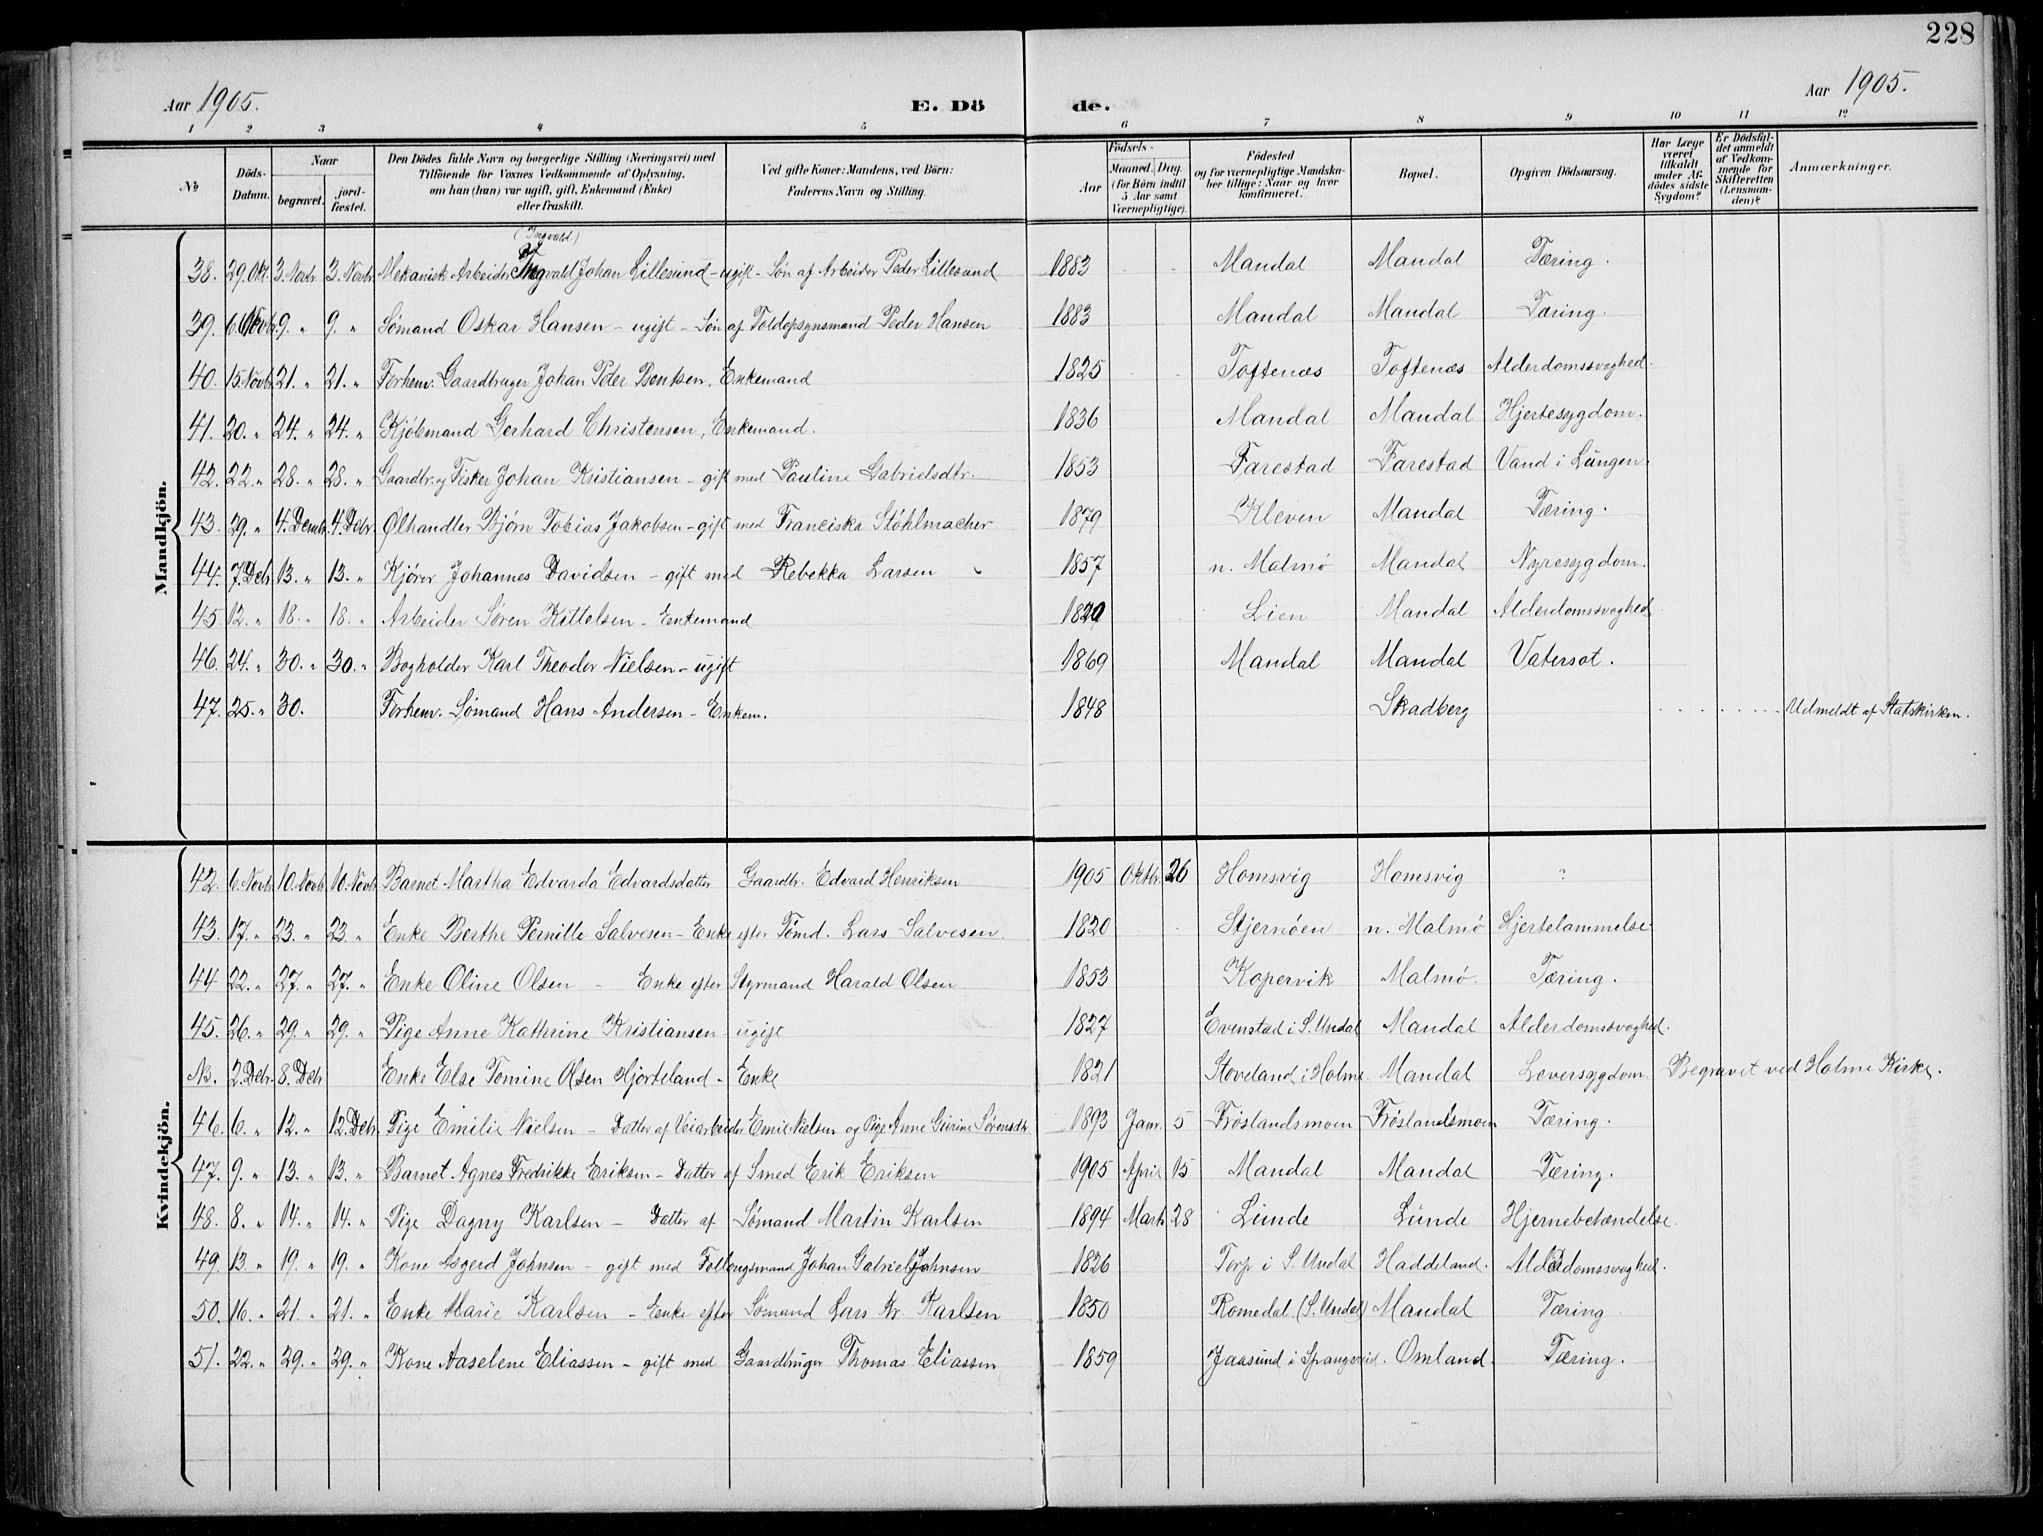 228
Aar 1905. E. Dö de. Aar 1905.
1 2 3 4 5 6 7 8 9 10 11 12
№ Döds-Datum. Naar begravet. jord-fæstet. Den Dödes fulde Navn og borgerlige Stilling (Næringsvei) med Tilföiende for Voxnes Vedkommende af Oplysning, om han (hun) var ugift, gift, Enkemand (Enke) eller fraskilt. Ved gifte Koner: Mandens, ved Börn: Faderens Navn og Stilling. Födsels- Aar Maaned. Dag. (for Börn indtil 5 Aar samt Værnepligtige). Födested og for værnepligtige Mandskaber tillige: Naar og hvor konfirmeret. Bopæl. Opgiven Dödsaarsag. Har Læge været tilkaldt under Afdödes sidste Sygdom? Er Dödsfaldet anmeldt af Vedkommende for Skifteretten (Lensmanden)? Anmærkninger.
Mandkjön.
(Ingvald)
38. 29. Okt. 3. Novbr. 3. Novbr. Mekanisk Arbeider Johan Lillesund - ugift - Søn af Arbeider Peder Lillesund 1883 Mandal Mandal Tæring.
39. 6. Novb. 9. " 9. " Sømand Oskar Hansen - ugift - Søn af Toldopsynsmand Peder Hansen 1883 Mandal Mandal Tæring.
40. 15. Novb. 21. " 21. " Forhenv. Gaardbruger Johan Peter Bentsen, Enkemand 1825 Toftenæs Toftenæs Alderdomssvaghed.
41. 20. " 24. " 24. " Kjøbmand Gerhard Christensen, Enkemand. 1836 Mandal Mandal Hjertesygdom.
42. 22. " 28. " 28. " Gaardbr. og Fisker Johan Kristiansen - gift med Pauline Gabrielsdtr. 1853 Farestad Farestad Vand i Lungen.
43. 29. " 4. Decmbr. 4. Debr. Ølhandler Bjørn Tobias Jakobsen - gift med Franciska Støhlmacher 1879 Kleven Mandal Tæring.
44. 7. Deb. 13. " 13. " Kjører Johannes Davidsen - gift med Rebekka Larsen 1857 n. Malmø Mandal Nyresygdom.
45. 12. " 18. " 18. " Arbeider Søren Kittelsen - Enkemand 1820 Lien Mandal Alderdomssvaghed
46. 24. " 30. " 30. " Bogholder Karl Theodor Nielsen - ugift 1869 Mandal Mandal Vatersot.
47. 25. " 30. Forhenv. Sømand Hans Andersen - Enkem. 1848 Skadberg Udmeldt af Statskirken.
Kvindekjön.
42. 6. Novb. 10. Novb. 10. Novb. Barnet Martha Edvarda Edvardsdatter Gaardbr. Edvard Henriksen 1905 Oktbr. 26 Homsvig Homsvig ?
43. 17. " 23. " 23. " Enke Berthe Pernille Salvesen - Enke efter Tømd. Lars Salvesen. 1820 Stjernøen n. Malmø Hjertelammelse
44 22. " 27. " 27. " Enke Oline Olsen - Enke efter Styrmand Harald Olsen 1853 Kopervik Malmø. Tæring.
45. 26. " 29. " 29. " Pige Anne Kathrine Kristiansen - ugift 1827 Evenstad i S. Undal Mandal Alderdomssvaghed.
N. 2. Debr. 8. Debr Enke Else Tomine Olsen Hjorteland - Enke 1821 Stoveland i Holme Mandal Leversygdom. Begravet ved Holme Kirke.
46. 6. " 12. " 12. Debr. Pige Emilie Nielsen - Datter af Veiarbeider Emil Nielsen og Pige Anne Gurine Sørensdtr. 1893 Janr. 5 Frøslandsmoen Frøslandsmoen Tæring.
47. 9. " 13. " 13. " Barnet Agnes Fredrikke Eriksen - Datter af Smed Erik Eriksen 1905 April 15 Mandal Mandal Tæring.
48. 8. " 14. " 14. " Pige Dagny Karlsen - Datter af Sømand Martin Karlsen 1894 Marts 28 Lunde Lunde Hjernebetændelse.
49. 13. " 19. " 19. " Kone Asgerd Johnsen - gift med Johan Gabriel Johnsen 1826 Torp i S. Undal Haddeland. Alderdomssvaghed.
50. 16. " 21. " 21. " Enke Marie Karlsen - Enke efter Sømand Lars Kr. Karlsen 1850 Romedal (S. Undal) Mandal Tæring
51. 22. " 29. " 29. " Kone Aaselene Eliassen - gift med Gaardbruger Thomas Eliassen 1859 Jaasund i Spangereid. Omland. Tæring.